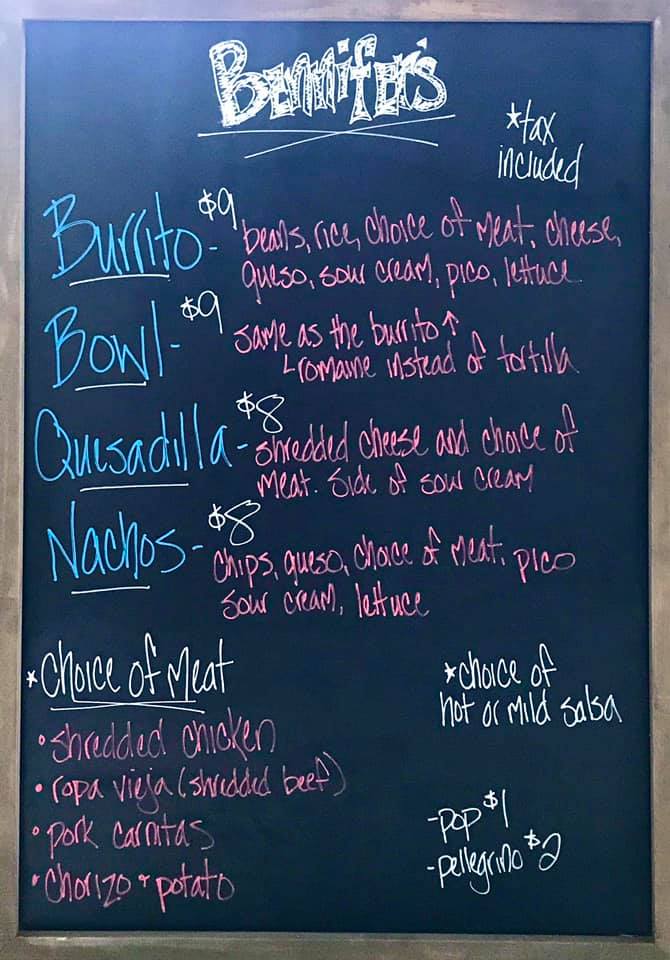 Bennifer's
*tax
included
Burrito - $9 beans, rice, choice of meat, cheese,
queso, sour cream, pico, lettuce
Bowl - $9 same as the burrito ↑
romaine instead of tortilla
Quesadilla - $8 shredded cheese and choice of
meat. Side of sour cream
Nachos - $8 chips, queso, choice of meat, pico
sour cream, lettuce
*Choice of Meat
• shredded chicken
• ropa vieja (shredded beef)
• pork carnitas
• chorizo + potato
*choice of
hot or mild salsa
- pop $1
- pellegrino $2